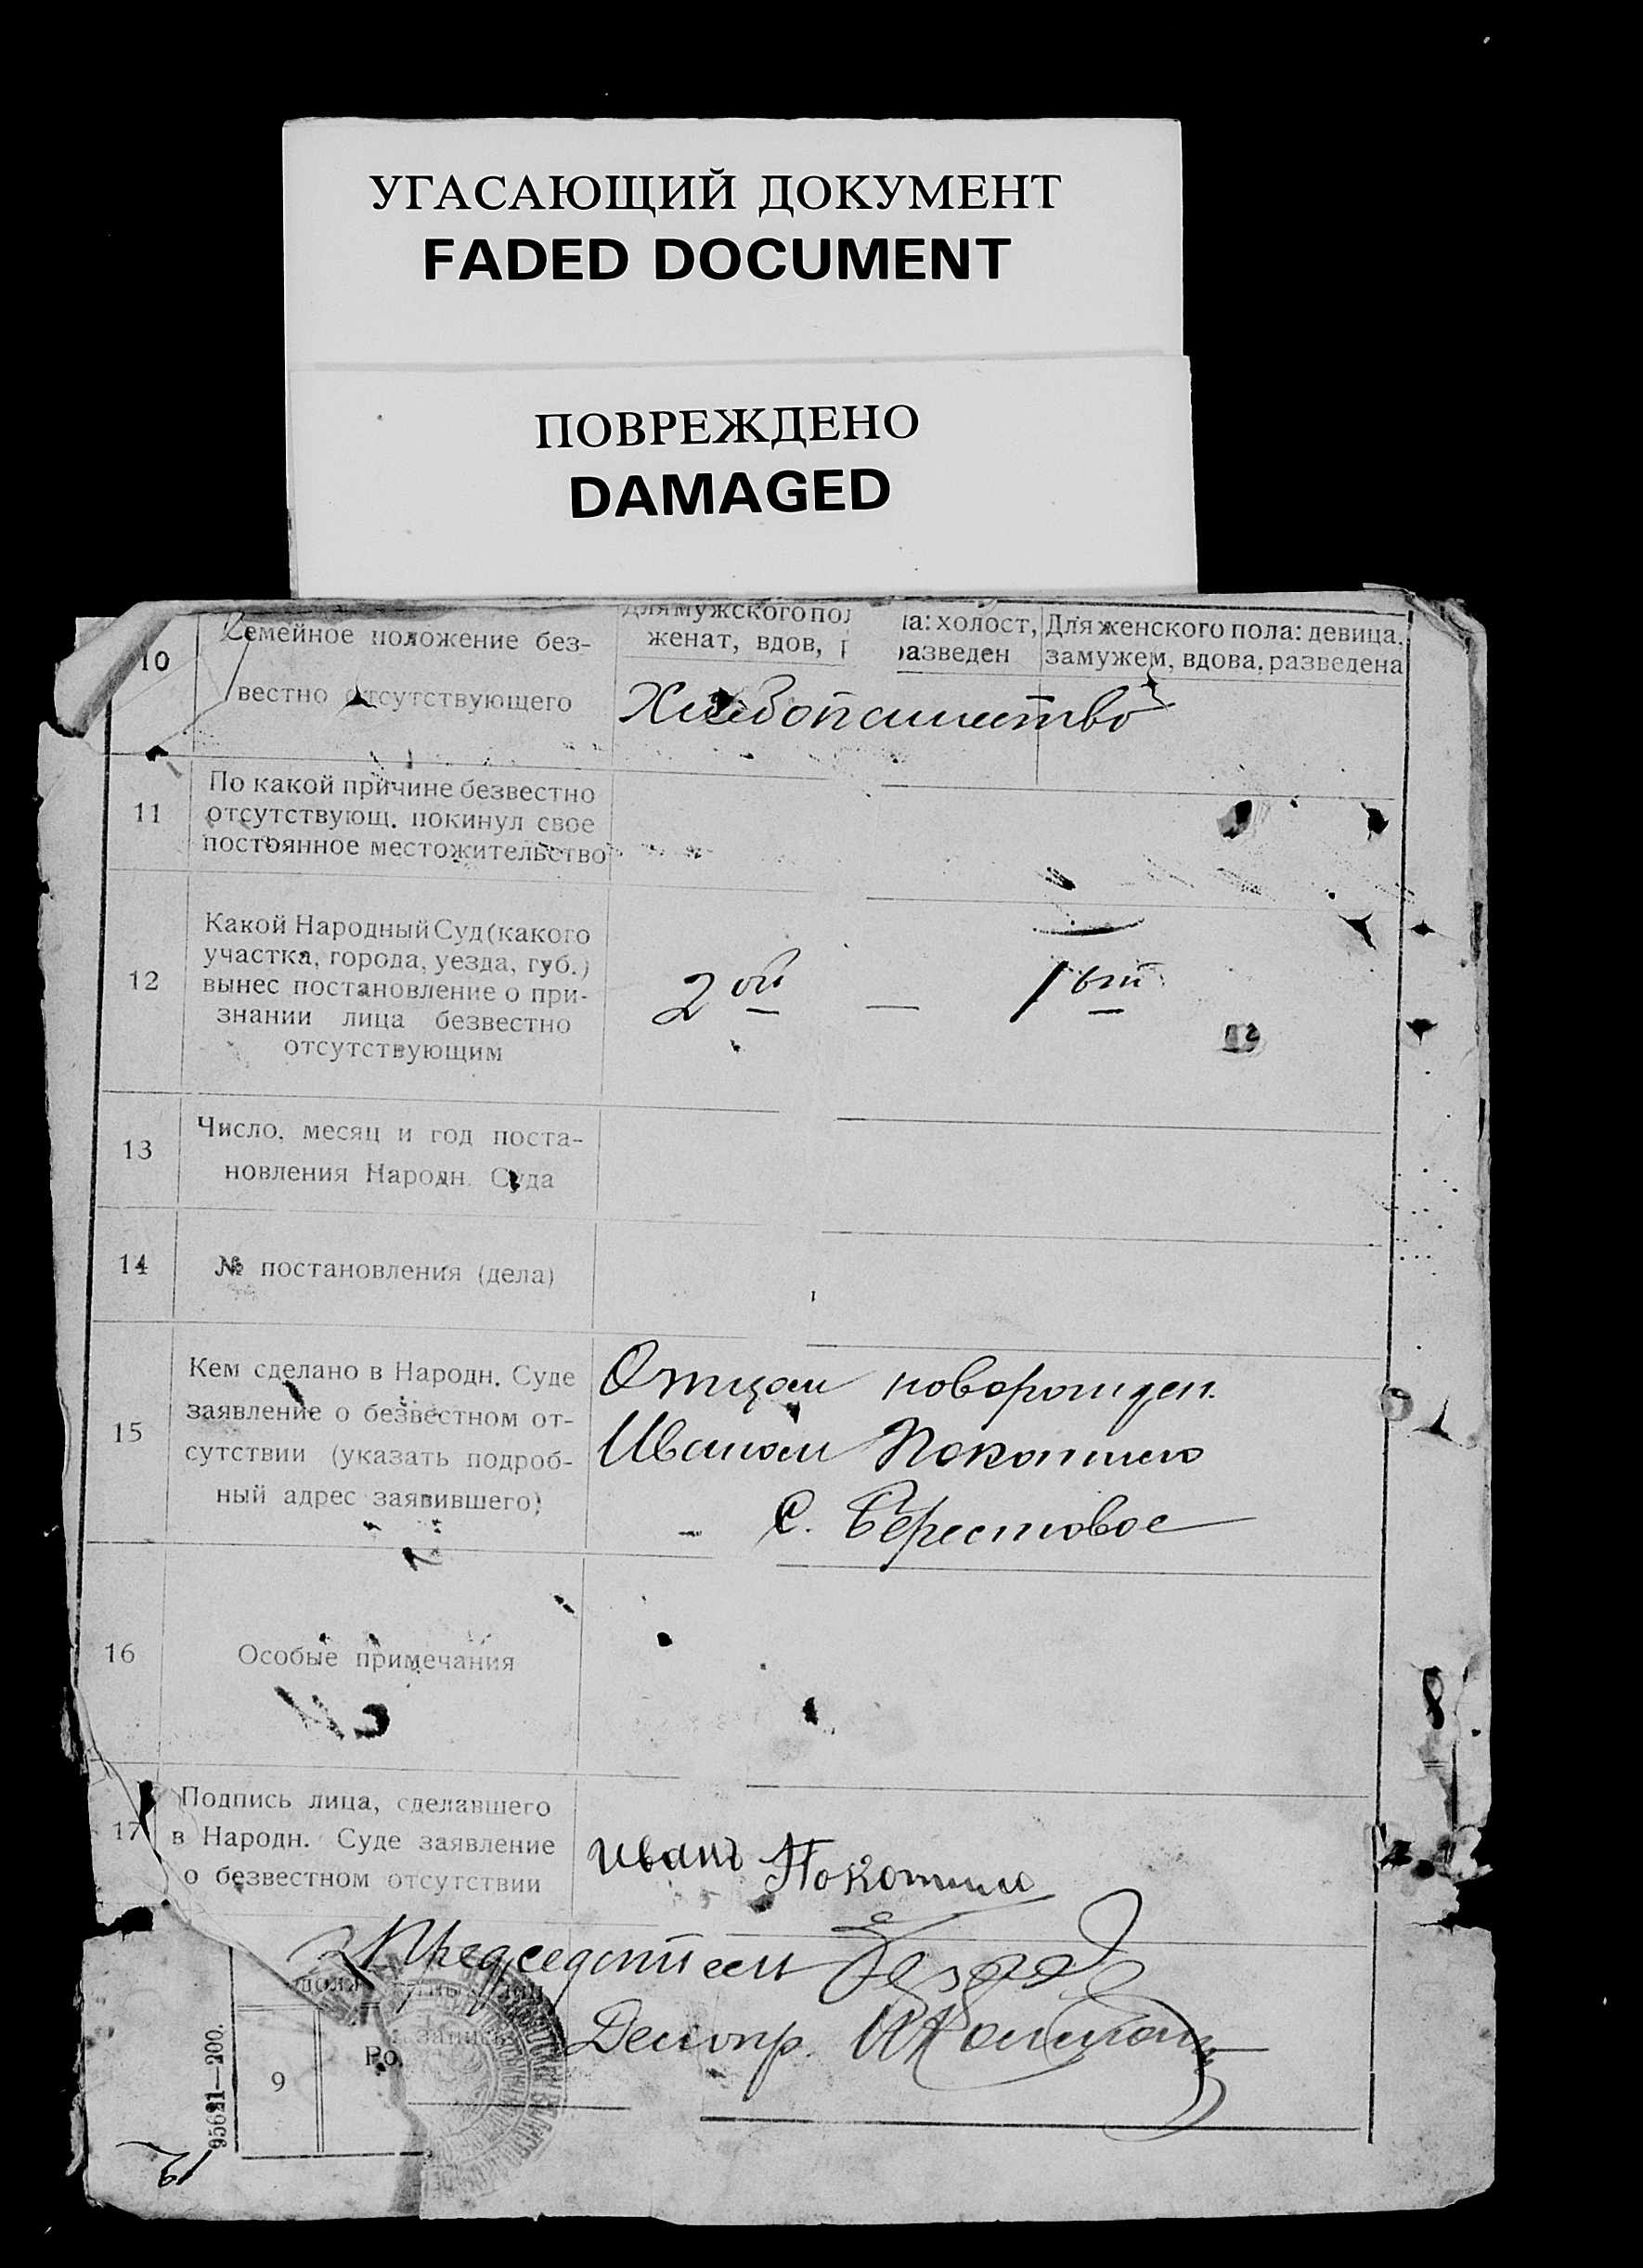 УГАСАЮЩИЙ ДОКУМЕНТ
FADED DOCUMENT
ПОВРЕЖДЕНО
DAMAGED
10
Семейное положение без-
вестно отсутствующего
Для мужского пола: холост,
женат, вдов, разведен
Для женского пола: девица,
замужем, вдова, разведена
Хлебопашество
11
По какой причине безвестно
отсутствующ. покинул свое
постоянное местожительство
12
Какой Народный Суд (какого
участка, города, уезда, губ.)
вынес постановление о при-
знании лица безвестно
отсутствующим
2 ой — 1 ый
13
Число, месяц и год поста-
новления Народн. Суда
14
№ постановления (дела)
15
Кем сделано в Народн. Суде
заявление о безвестном от-
сутствии (указать подроб-
ный адрес заявившего)
Отцом новорожден.
Иваном Покотило
с. Берестовое
16
Особые примечания
17
Подпись лица, сделавшего
в Народн. Суде заявление
о безвестном отсутствии
Иванъ Покотило
Председатель
Делопр.
9
Ро
95621—200.